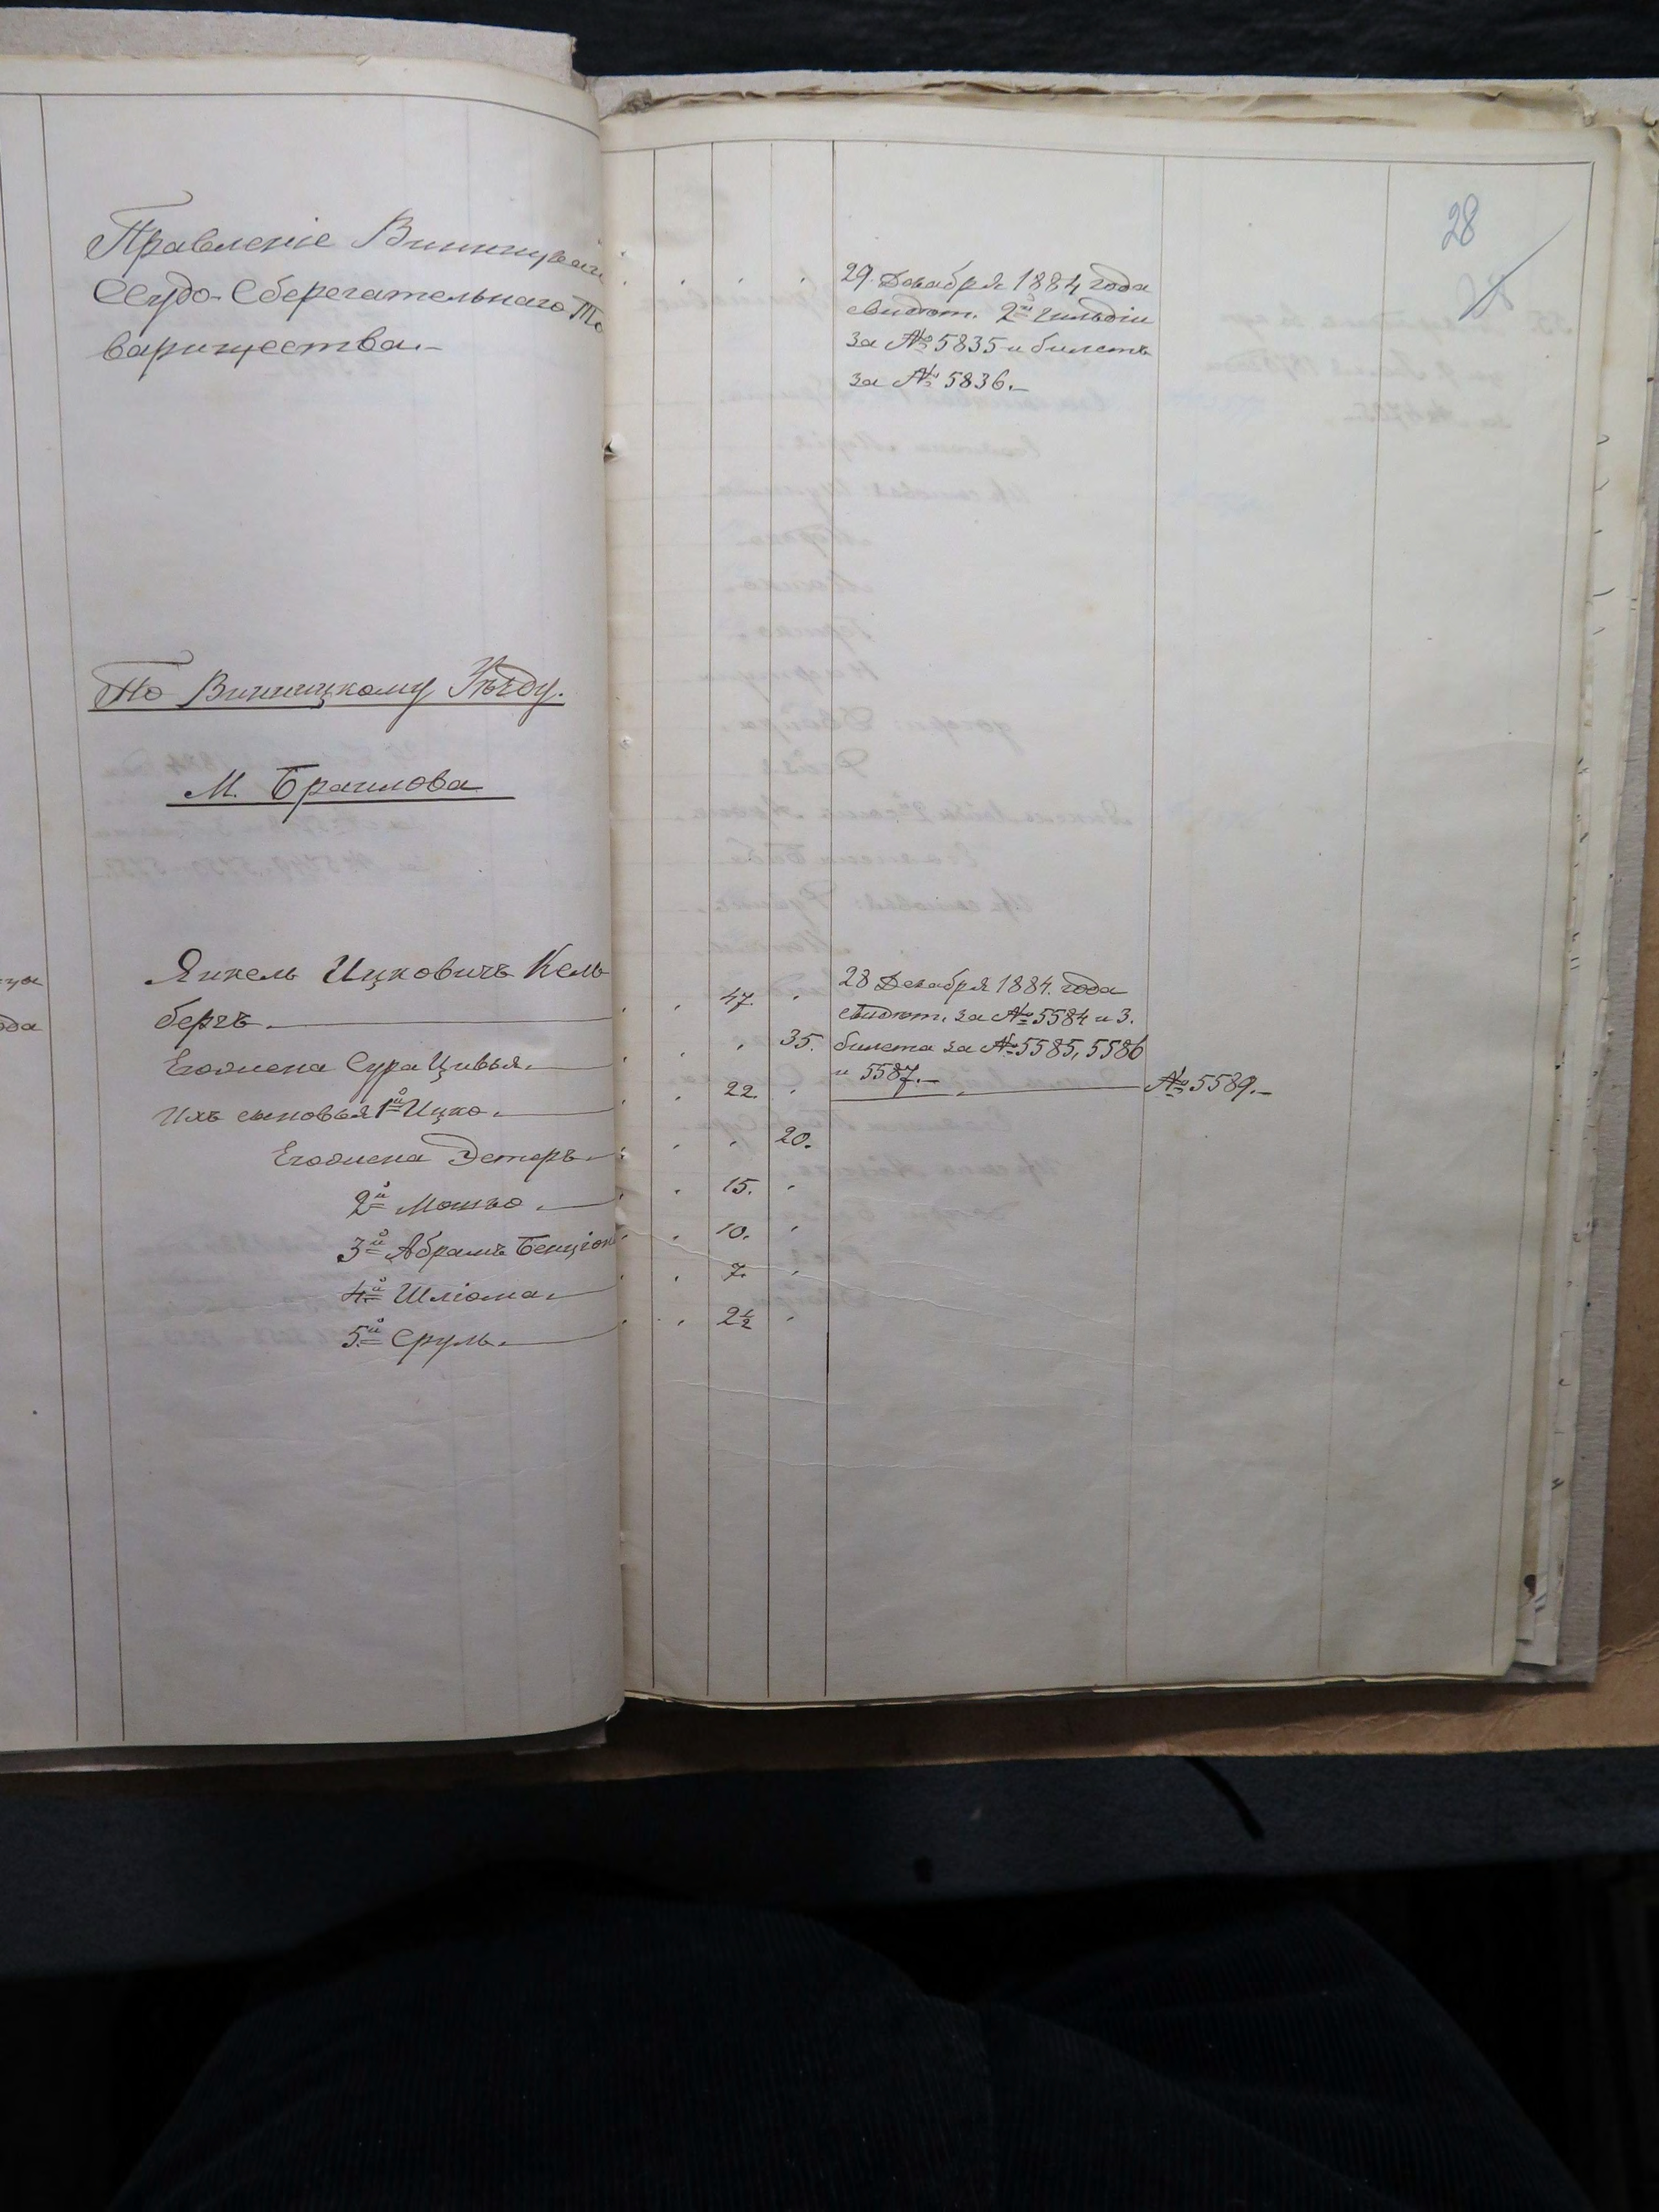 28
Правленіе Винницкаго
Ссудо-Сберегательнаго То
варищества.-
29. Декабря 1884 года
свидѣт. 2й гильдіи
за № 5835 и билетъ
за № 5836.-
По Винницкому Уѣзду.
М. Браилова
Янкель Ицковичъ Кель
бергъ. 47.
Его жена Сура Цивья. 35.
Ихъ сыновья 1й Ицко. 22.
Его жена Эстеръ. 20.
2й Мошко. 15.
3й Абрамъ Бенціонъ 10.
4й Шліома. 7.
5й Сруль. 2½
28 Декабря 1884. года
свидѣт. за № 5584 и 3.
билета за № 5585, 5586
и 5587.- № 5589.-
ода